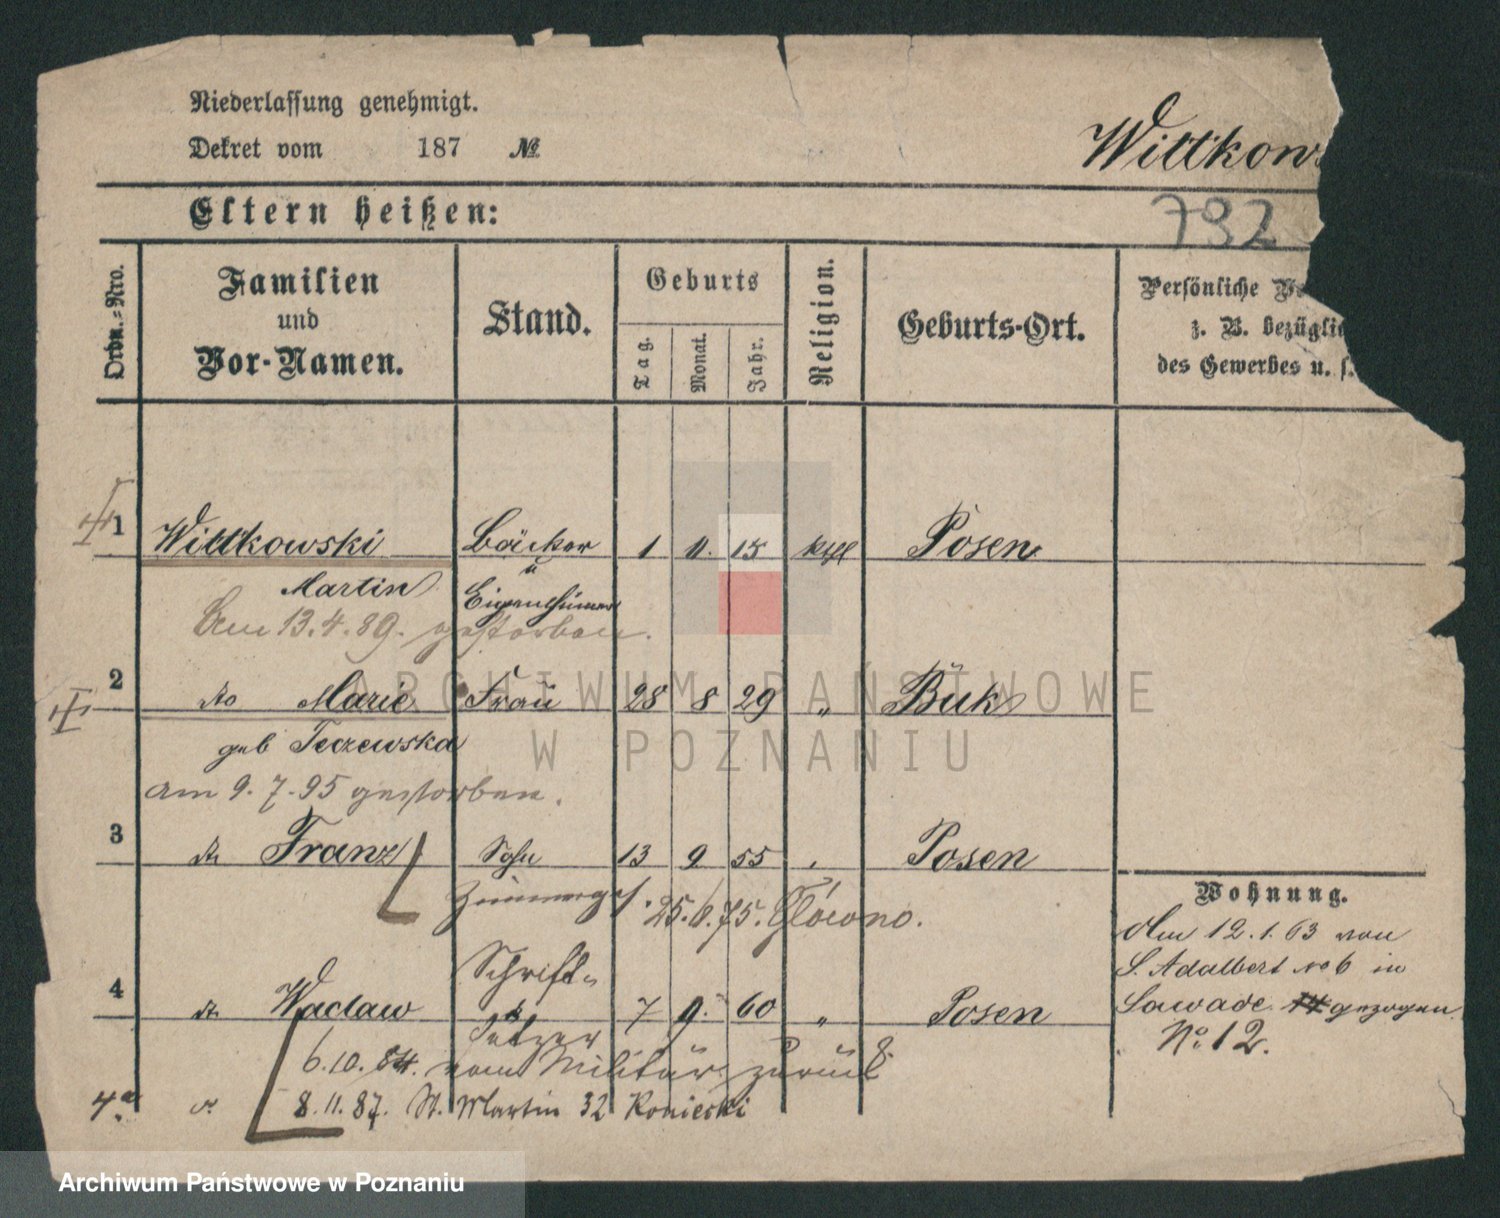 Niederlassung genehmigt.
Dekret vom 187 №
Wittkows
Eltern heißen:
792
Ordn.-Nro.
Familien
und
Vor-Namen.
Stand.
Geburts
Tag.
Monat.
Jahr.
Religion.
Geburts-Ort.
Persönliche Ve
z. B. bezüglic
des Gewerbes u. s.
1 Wittkowski Bäcker 1 11. 15 kath Posen
Martin u Eigenthümer
Am 13.4.89. gestorben.
2 dto Marie Frau 28 8 29 " Buk
geb Teczewska
am 9.7.95 gestorben.
3 dto Franz Sohn 13 9 55 " Posen
25.6.75. Główno.
4 dto Waclaw Schrift-
setzer 7 9. 60 " Posen
6.10.84. vom Militär zurück
4a 8.11.87. St. Martin 32 Konieski
Wohnung.
Am 12.1.63 von
S. Adalbert No 6 in
Sawade 14 gezogen.
No 12.
ARCHIWUM PAŃSTWOWE
W POZNANIU
Archiwum Państwowe w Poznaniu